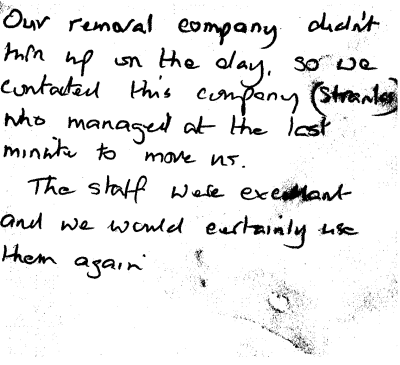 Our removal company didn't
turn up on the day, so we
contacted this company (
who managed at the last
minute to move us.
The staff were
and we would certainly use
them again